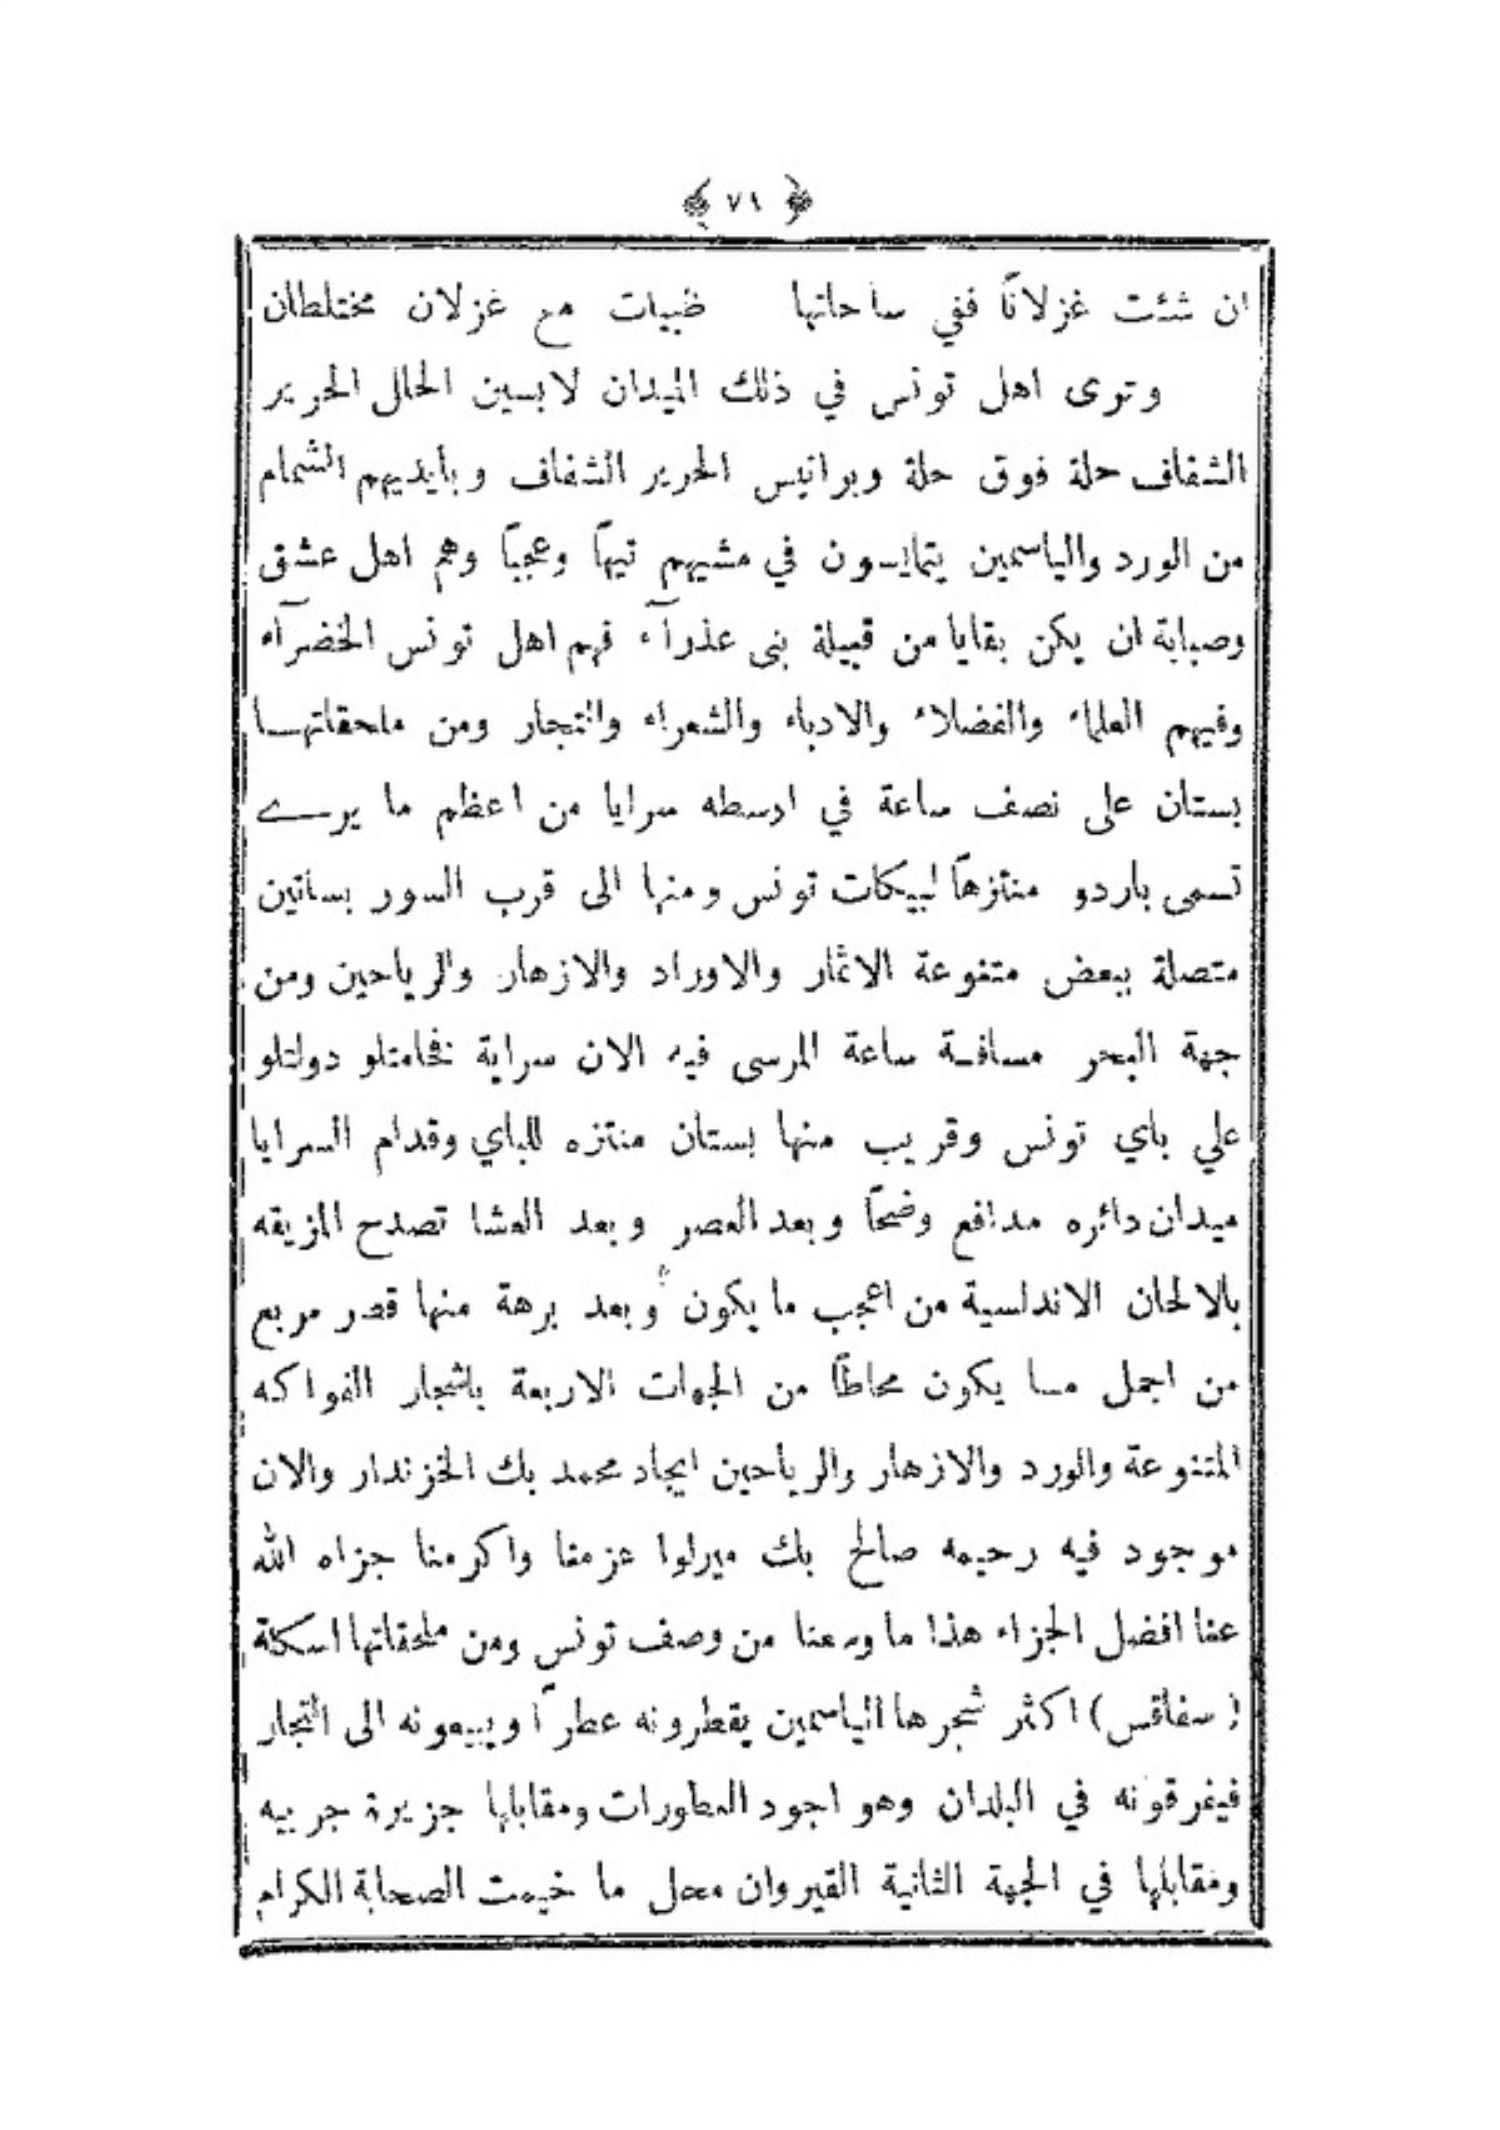 ﴿ ٧١ ﴾
ان شئت غزلانًا ففي ساحاتها ظبيات مع غزلان مختلطان
وترى اهل تونس في ذلك الميدان لابسين الحلل الحرير
الشفاف حلة فوق حلة وبرانيس الحرير الشفاف وبايديهم الشمام
من الورد والياسمين يتمايسون في مشيهم تيهًا وعجبًا وهم اهل عشق
وصبابة ان يكن بقايا من قبيلة بنى عذرآء فهم اهل تونس الخضرآء
وفيهم العلماء والفضلاء والادباء والشعراء والتجار ومن ملحقاتها
بستان على نصف ساعة في اوسطه سرايا من اعظم ما يرے
تسمى باردو منتزهًا لبيكات تونس ومنها الى قرب السور بساتين
متصلة ببعض متنوعة الاثمار والاوراد والازهار والرياحين ومن
جهة البحر مسافة ساعة المرسى فيه الان سراية فخامتلو دولتلو
علي باي تونس وقريب منها بستان منتزه للباي وقدام السرايا
ميدان دائره مدافع وضحًا وبعد العصر وبعد العشا تصدح المزيقه
بالالحان الاندلسية من اعجب ما يكون وبعد برهة منها قصر مربع
من اجمل ما يكون محاطًا من الجهات الاربعة باشجار الفواكه
المتنوعة والورد والازهار والرياحين ايجاد محمد بك الخزندار والان
موجود فيه رحيمه صالح بك ميرلوا عزمنا واكرمنا جزاه الله
عنا افضل الجزاء هذا ما وسعنا من وصف تونس ومن ملحقاتها اسكلة
(سفاقس) اكثر شجرها الياسمين يقطرونه عطرًا ويبيعونه الى التجار
فيفرقونه في البلدان وهو اجود العطورات ومقابلها جزيرة جربيه
ومقابلها في الجهة الثانية القيروان محل ما خيمت الصحابة الكرام